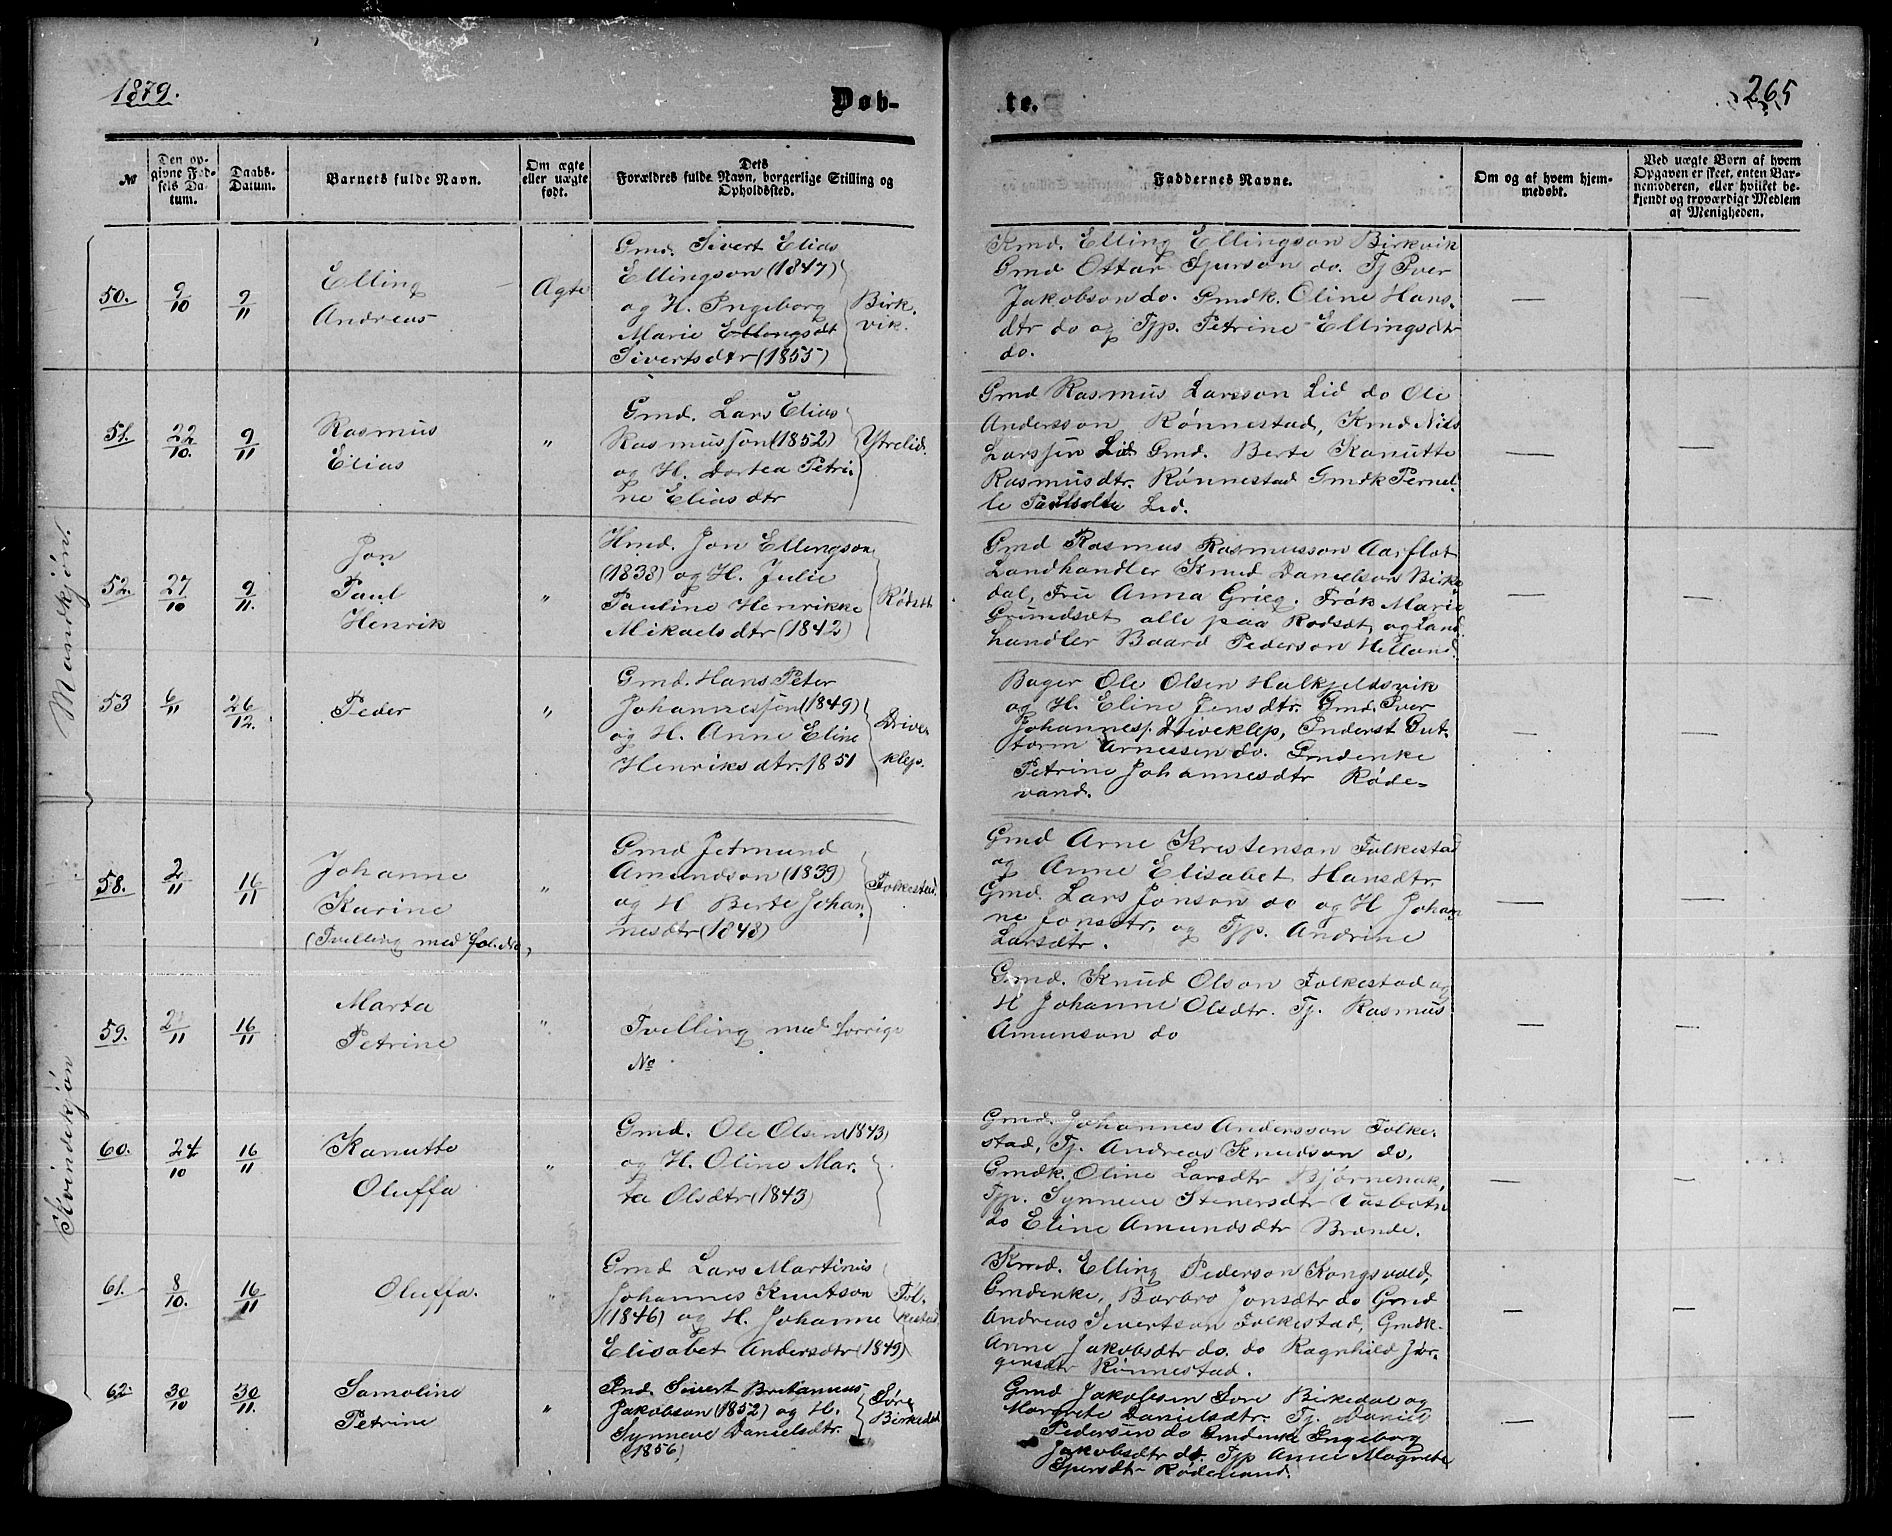 1879.
Døb-
te.
265
№
Den op-
givne Fød-
sels Da-
tum.
Daabs-
Datum.
Barnets fulde Navn.
Om ægte
eller uægte
født.
Dets
Forældres fulde Navn, borgerlige Stilling og
Opholdsted.
Faddernes Navne.
Om og af hvem hjem-
medøbt.
Ved uægte Børn af hvem
Opgaven er skeet, enten Bar-
nemoderen, eller hvilket be-
kjendt og troværdigt Medlem
af Menigheden.
Mandkjøn.
50.
9/10
9/11
Elling
Andreas
Ægte
Gmd. Sivert Elias
Ellingson (1847)
og H. Ingeborg
Marie Ellingsdt
Sivertsdtr (1855)
Birk-
vik.
Kmd. Elling Ellingson Birkvik
Gmd Ottar Iverson do. Tj Iver
Jakobson do. Gmdk. Oline Hans-
dtr do og Tjp. Petrine Ellingsdtr
do.
—
—
51.
22/10.
9/11
Rasmus
Elias
"
Gmd. Lars Elias
Rasmussøn (1852)
og H. Dortea Petri-
ne Eliasdtr
Ytrelid.
Gmd Rasmus Larsson Lid do Ole
Andersson Rønnestad, Kmd Nils
Larssen Lid Gmd. Berte Kanutte
Rasmusdtr. Rønnestad Gmdk Pernel-
le Lid.
—
—
52.
27/10
9/11.
Jon
Paul
Henrik
"
Hmd. Jon Ellingson
(1838) og H. Julie
Pauline Henrikke
Mikaelsdtr (1842)
Rødset
Gmd Rasmus Rasmusson Aarflot
Landhandler Knud Danielson Birke-
dal, Frue Anna Grieg. Frøk Marie
Grundset alle paa Rødset, og Land-
handler Baard Pederson Helland.
—
—
53
6/11
26/12.
Peder
"
Gmd. Hans Peter
Johannessøn (1849)
og H. Anne Eline
Henriksdtr. 1851
Drive-
klep.
Bager Ole Olsen Halkjeldsvik
og H. Eline Jensdtr. Gmd. Iver
Johanness. Driveklep, Inderst Gut-
torm Arnessen do. Gmdenke
Petrine Johannesdtr Røde-
vand.
—
—
Kvindekjøn
58.
2/11
16/11
Johanne
Karine
(Tvilling med føl. No
"
Gmd Jetmund
Amundson (1839)
og H Berte Johan-
nesdtr (1848)
Folkestad
Gmd Arne Kristenson Folkestad
og Anne Elisabet Hansdtr.
Gmd. Lars Jonson do og H Johan
ne Jonsdtr. og Tjp. Andrine
Larsdtr.
—
—
59.
2/11
16/11
Marta
Petrine
"
Tvelling med forrige
No
Gmd. Knud Olson Folkestad og
H Johanne Olsdtr. Tj. Rasmus
Amunson do
—
—
60.
24/10
16/11
Kanutte
Oluffa
"
Gmd. Ole Olsen (1843)
og H. Oline Mar-
ta Olsdtr (1843)
Gmd. Johannes Andersson Folke-
stad, Tj. Andreas Knudson do,
Gmdk. Oline Larsdtr Bjørnenak,
Tjp. Synneve Stenersdtr Vasbotn
do Eline Amundsdtr Brende.
—
—
61.
8/10.
16/11
Oluffa.
"
Gmd Lars Martinus
Johannes Knutson
(1846) og H. Johanne
Elisabet Andersdtr (1849)
Fol-
kestad
Kmd. Elling Pederson Kongsvold,
Gmdenke, Barbro Jonsdtr do Gmd
Andreas Sivertson Folkestad, Gmdk.
Anne Jakobsdtr do. do Ragnhild Jør-
gensdtr Rønnestad.
—
—
62.
30/10
30/11.
Samoline
Petrine
"
Ind. Sivert Britanius
Jakobson (1852) og H.
Synneve Danielsdtr.
(1856)
Søre
Birkedal
Gmd Jakobsen Søre Birkedal og
Margrete Danielsdtr. Tj. Daniel
Pedersen do Gmdenke Ingeborg
Jakobsdtr do. Tjp Anne Magrete
Iversdtr Rødevand
—
—